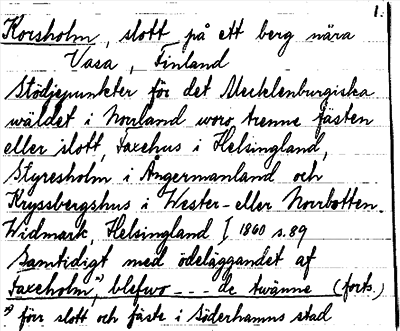 1.
Korsholm, slott på ett berg nära
Vasa, Finland
Stödjepunkter för det Mecklenburgiska
wäldet i Norrland woro trenne fästen
eller slott, Faxehus i Helsingland,
Styresholm i Ångermanland och
Kryssbergshus i Wester- eller Norrbotten.
Widmark, Helsingland I 1860 s. 89
Samtidigt med ödeläggandet af
Faxeholm,*) blefwo --- de twänne (forts.)
*) förr slott och fäste i Söderhamns stad